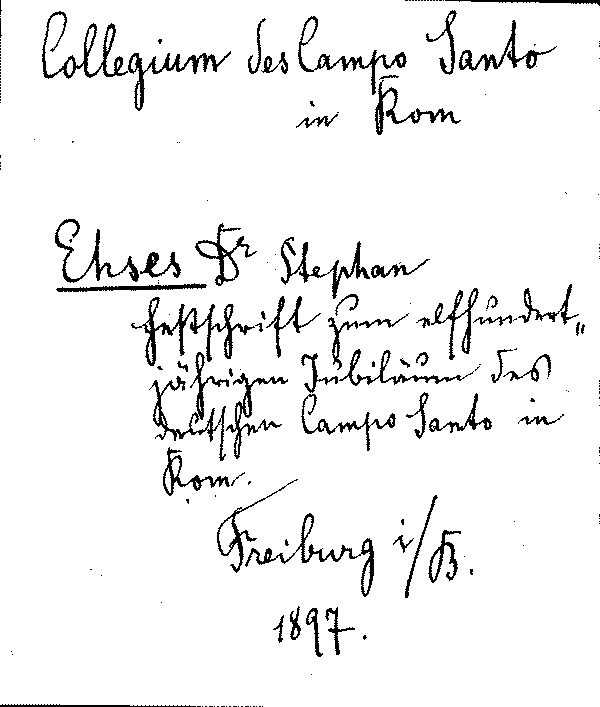 Collegium des Campo Santo
in Rom
Ehses Dr Stephan
Festschrift zum elfhundert„
jährigen Jubiläum des
deutschen Campo Santo in
Rom.
Freiburg i/B.
1897.